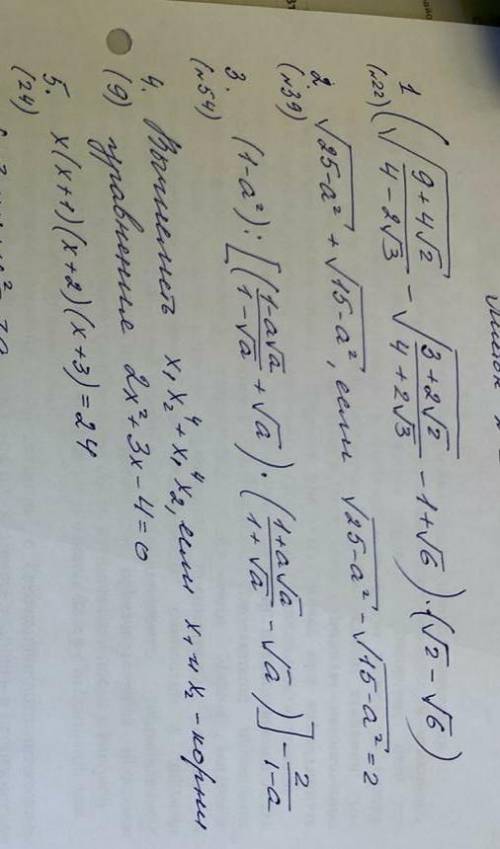 1 (√(9+4√2 / 4-2√3) - √(3+2√2 / 4+2√3) - 1+√6)·(√2-√6)
(№22)
2. √25-a² + √15-a², если √25-a² - √15-a² = 2
(№39)
3. (1-a²):[(1-a√a / 1-√a + √a)·(1+a√a / 1+√a - √a)] - 2 / 1-a
(№54)
4. Вычислить x₁x₂⁴+x₁⁴x₂, если x₁ и x₂ - корни
(9) уравнение 2x²+3x-4=0
5. x(x+1)(x+2)(x+3)=24
(24)